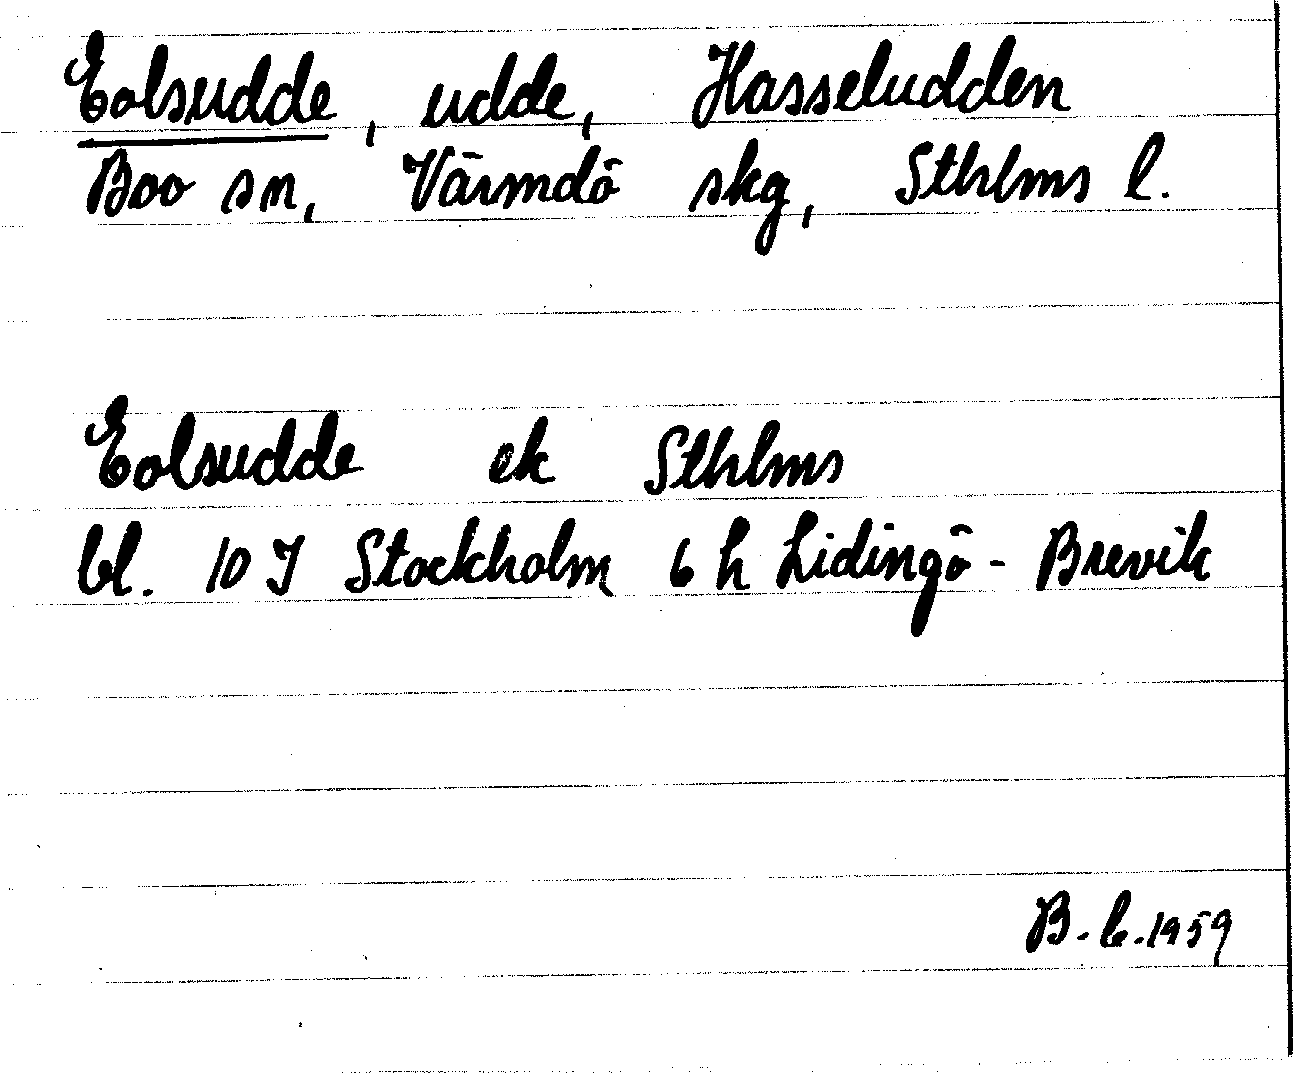 Eolsudde, udde, Hasseludden
Boo sn, Värmdö skg, Sthlms l.
Eolsudde ek Sthlms
bl. 10 I Stockholm 6 h Lidingö - Brevik
B. C. 1959